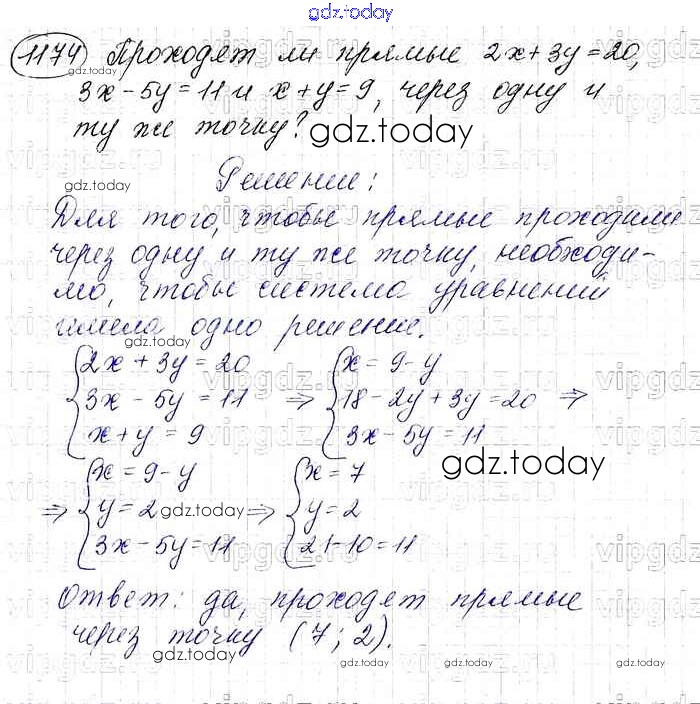 gdz.today
1174 Проходят ли прямые 2x+3y=20,
3x-5y=11 и x+y=9, через одну и
ту же точку? gdz.today
gdz.today
Решение:
Для того, чтобы прямые проходили
через одну и ту же точку, необходи-
мо, чтобы система уравнений
имела одно решение.
{2x+3y=20 {x=9-y
3x-5y=11 ⇒ 18-2y+3y=20 ⇒
x+y=9 3x-5y=11
gdz.today
{x=9-y {x=7
⇒ y=2 gdz.today ⇒ y=2
3x-5y=11 21-10=11
Ответ: да, проходят прямые
через точку (7; 2).
gdz.today gdz.today gdz.today